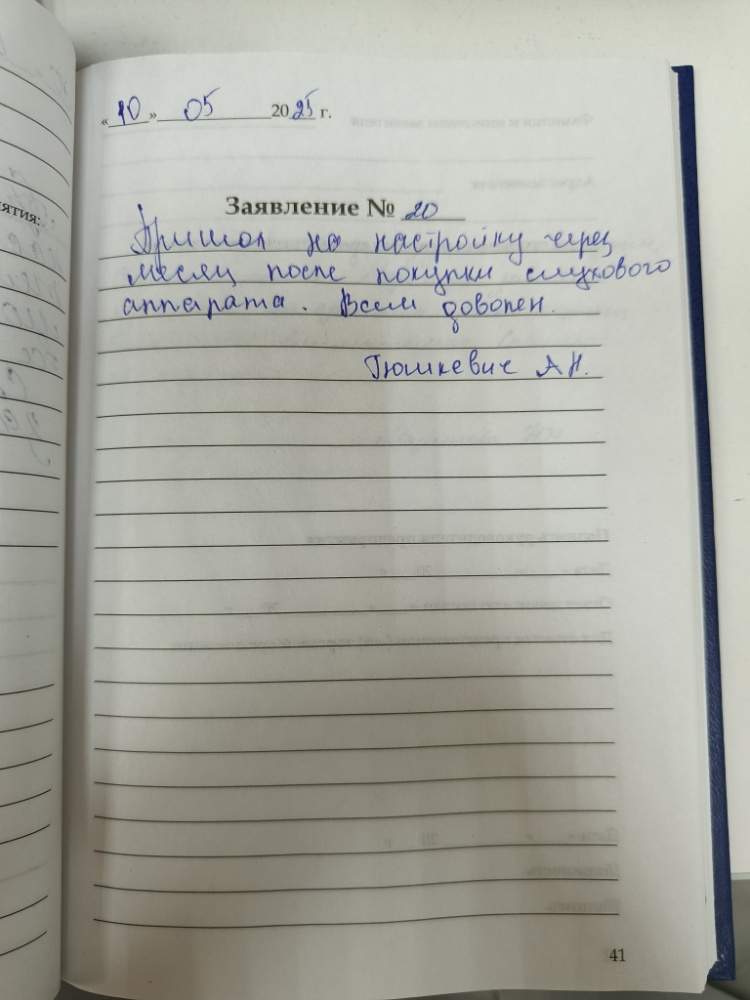 «10» 05 2025 г.
Заявление № 20
Пришол на настройку через
месяц после покупки слухового
аппарата. Всем доволен.
Гюшкевич А.Н.
ятия:
41